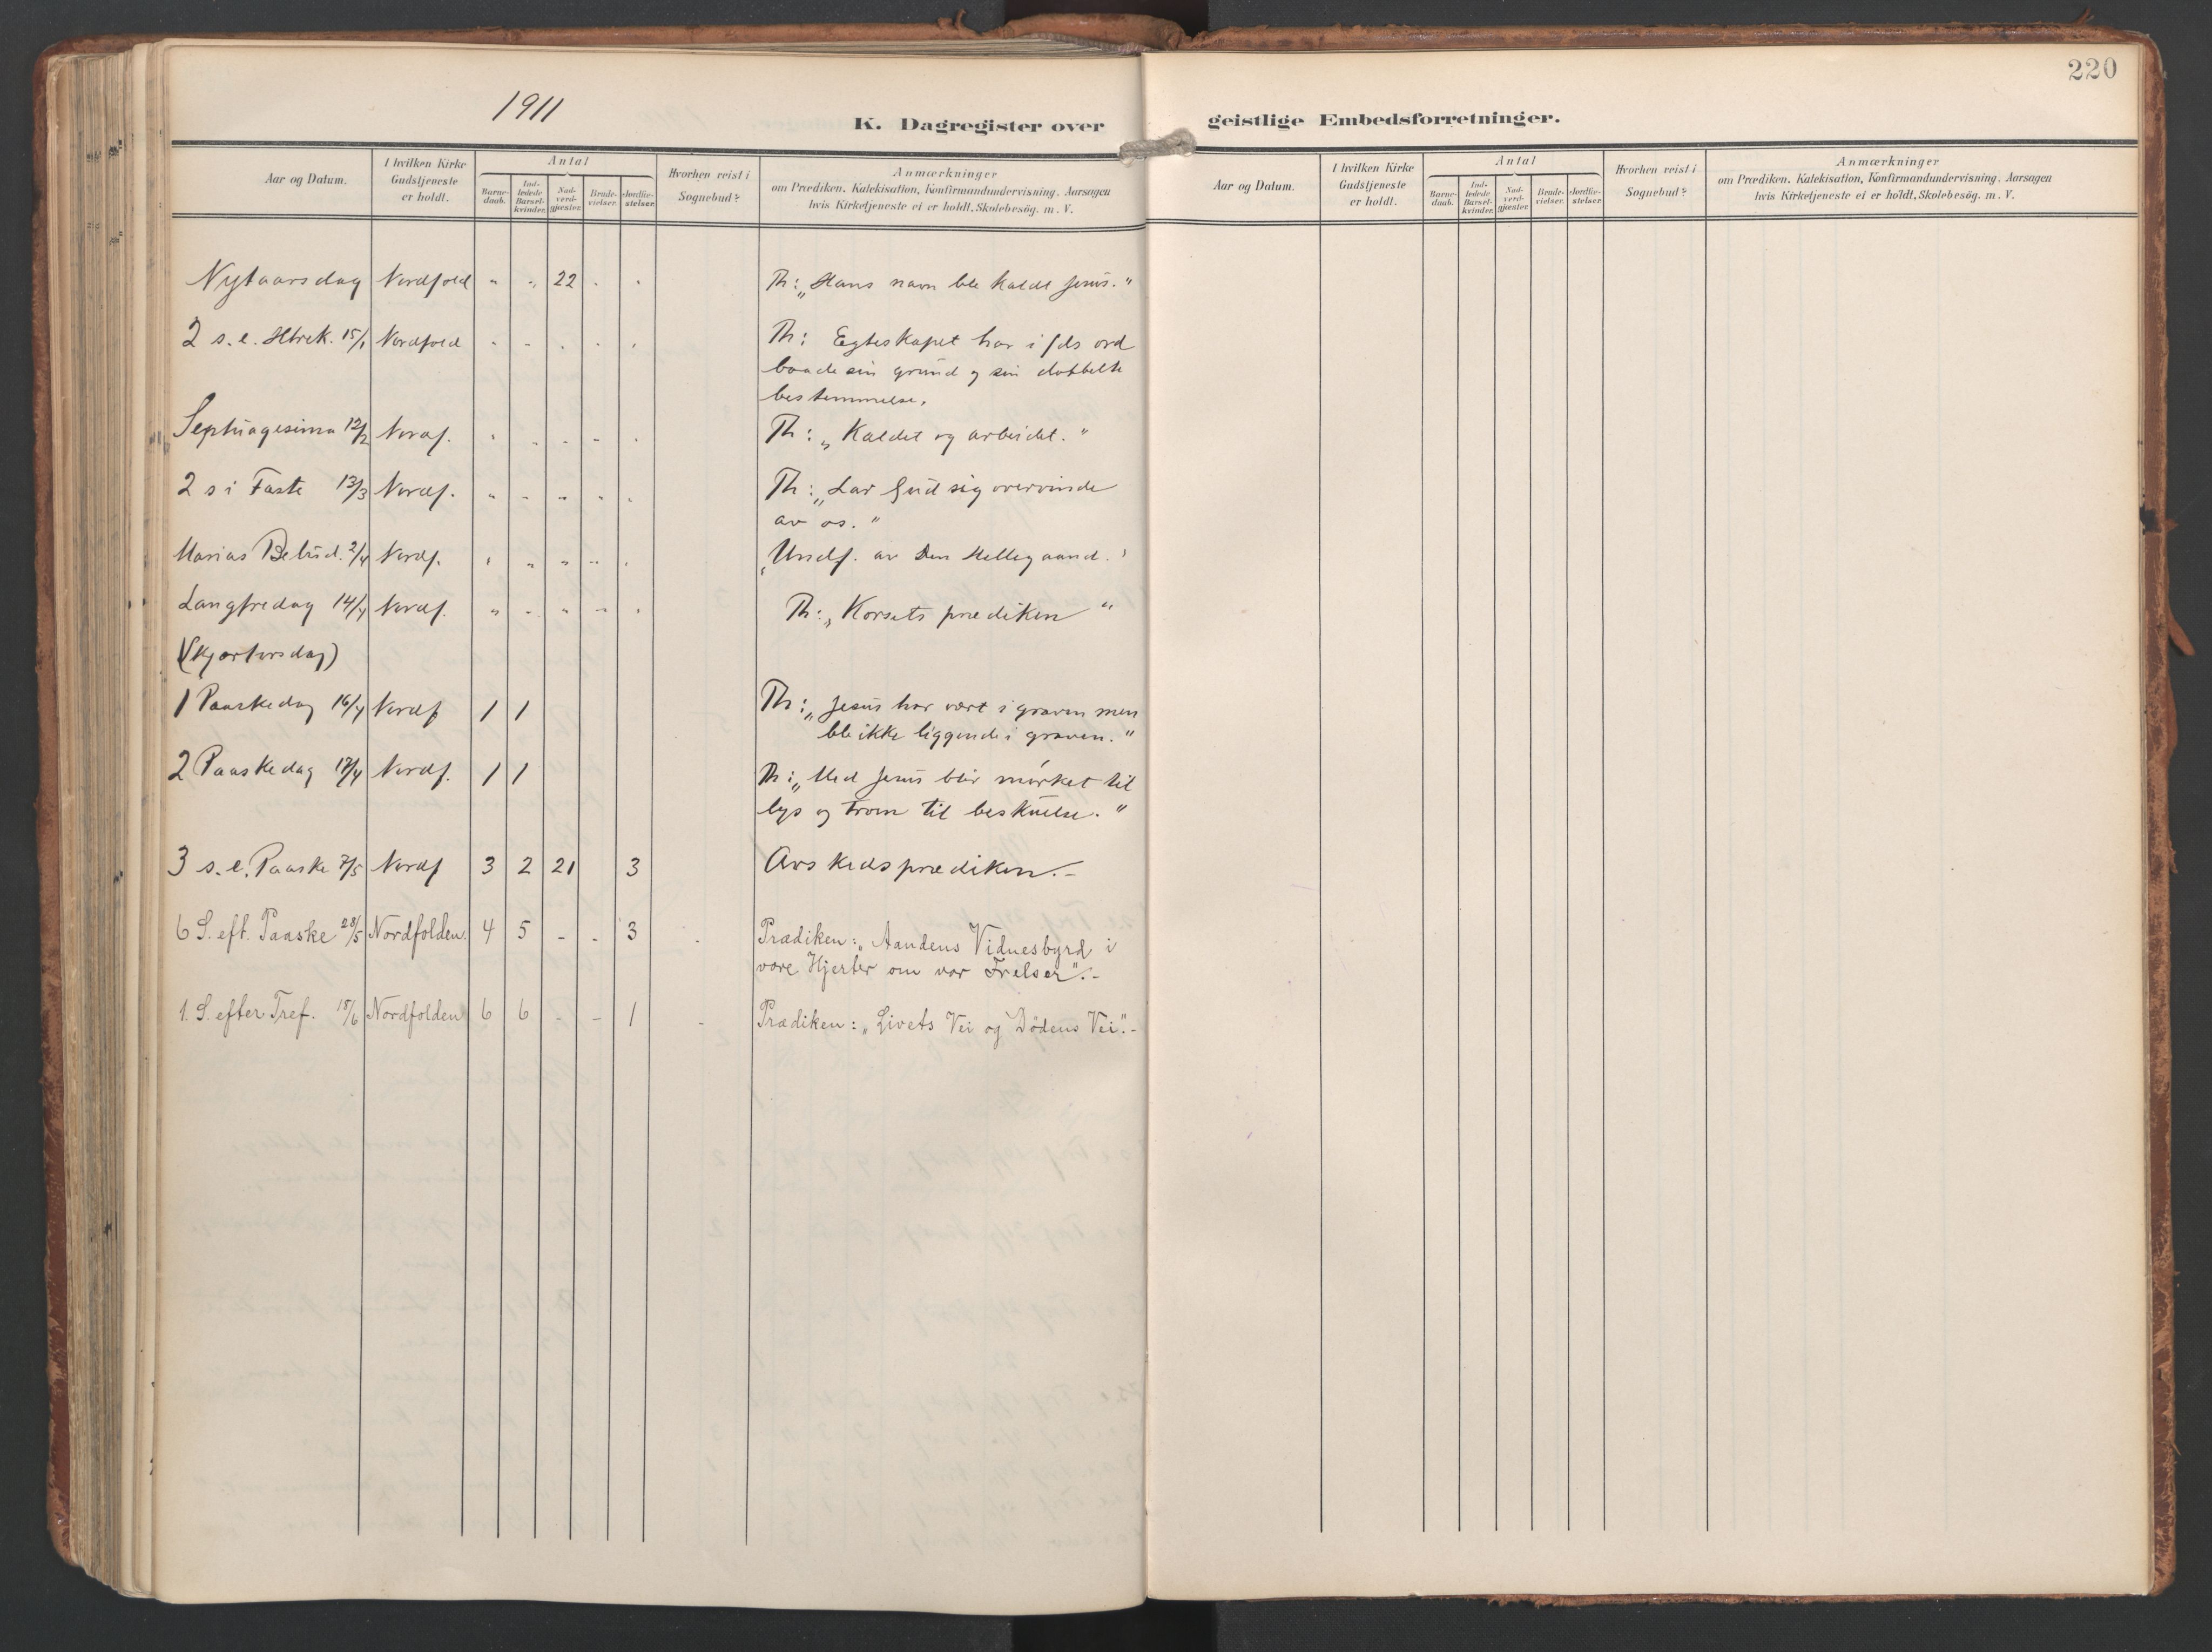 220
1911
K. Dagregister over geistlige Embedsforretninger.
Aar og Datum.
I hvilken Kirke Gudstjeneste er holdt.
Antal
Barne-daab.
Ind-ledede Barsel-kvinder.
Nad-verd-gjæster.
Brude-vielser.
Jordfæ-stelser.
Hvorhen reist i Sognebud?
Anmærkninger
om Prædiken, Katekisation, Konfirmandundervisning. Aarsagen
hvis Kirketjeneste ei er holdt, Skolebesög. m. V.
Aar og Datum.
I hvilken Kirke Gudstjeneste er holdt.
Antal
Barne-daab.
Ind-ledede Barsel-kvinder.
Nad-verd-gjæster.
Brude-vielser.
Jordfæ-stelser.
Hvorhen reist i Sognebud?
Anmærkninger
om Prædiken, Katekisation, Konfirmandundervisning. Aarsagen
hvis Kirketjeneste ei er holdt, Skolebesög. m. V.
Nytaarsdag Nordfold " " 22 " " Th: „Hans navn ble kaldt Jesus."
2 s. e. Htrek. 15/1 Nordfold " " " " " Th: Egteskapet har i Gds ord
baade sin grund og sin dobbelte
bestemmelse.
Septuagesima 12/2 Nordf. " " " " " Th: „Kaldet og arbeidet."
2 s i Faste 13/3 Nordf. " " " " " Th: „Lar Gud sig overvinde
av os."
Marias Bebud. 2/4 Nordf. " " " " " „Undf. av Den Helligaand."
Langfredag 14/4 Nordf. " " " " " Th: „Korsets prædiken"
(Skjærtorsdag)
1 Paaskedag 16/4 Nordf 1 1 Th: „Jesus har vært i graven men
ble ikke liggende i graven."
2 Paaskedag 17/4 Nordf. 1 1 Th: „Med Jesus blir mørket til
lys og troen til beskuelse."
3 s. e. Paaske 7/5 Nordf 3 2 21 3 Avskedsprædiken.-
6 S. eft. Paaske 28/5 Nordfolden. 4 5 - - 3 - Prædiken: „Aandens Vidnesbyrd i
vore Hjerter om vor Frelser".-
1. S. efter Tref. 18/6 Nordfolden 6 6 - - 1 - Prædiken: „Livets Vei og Dødens Vei".-